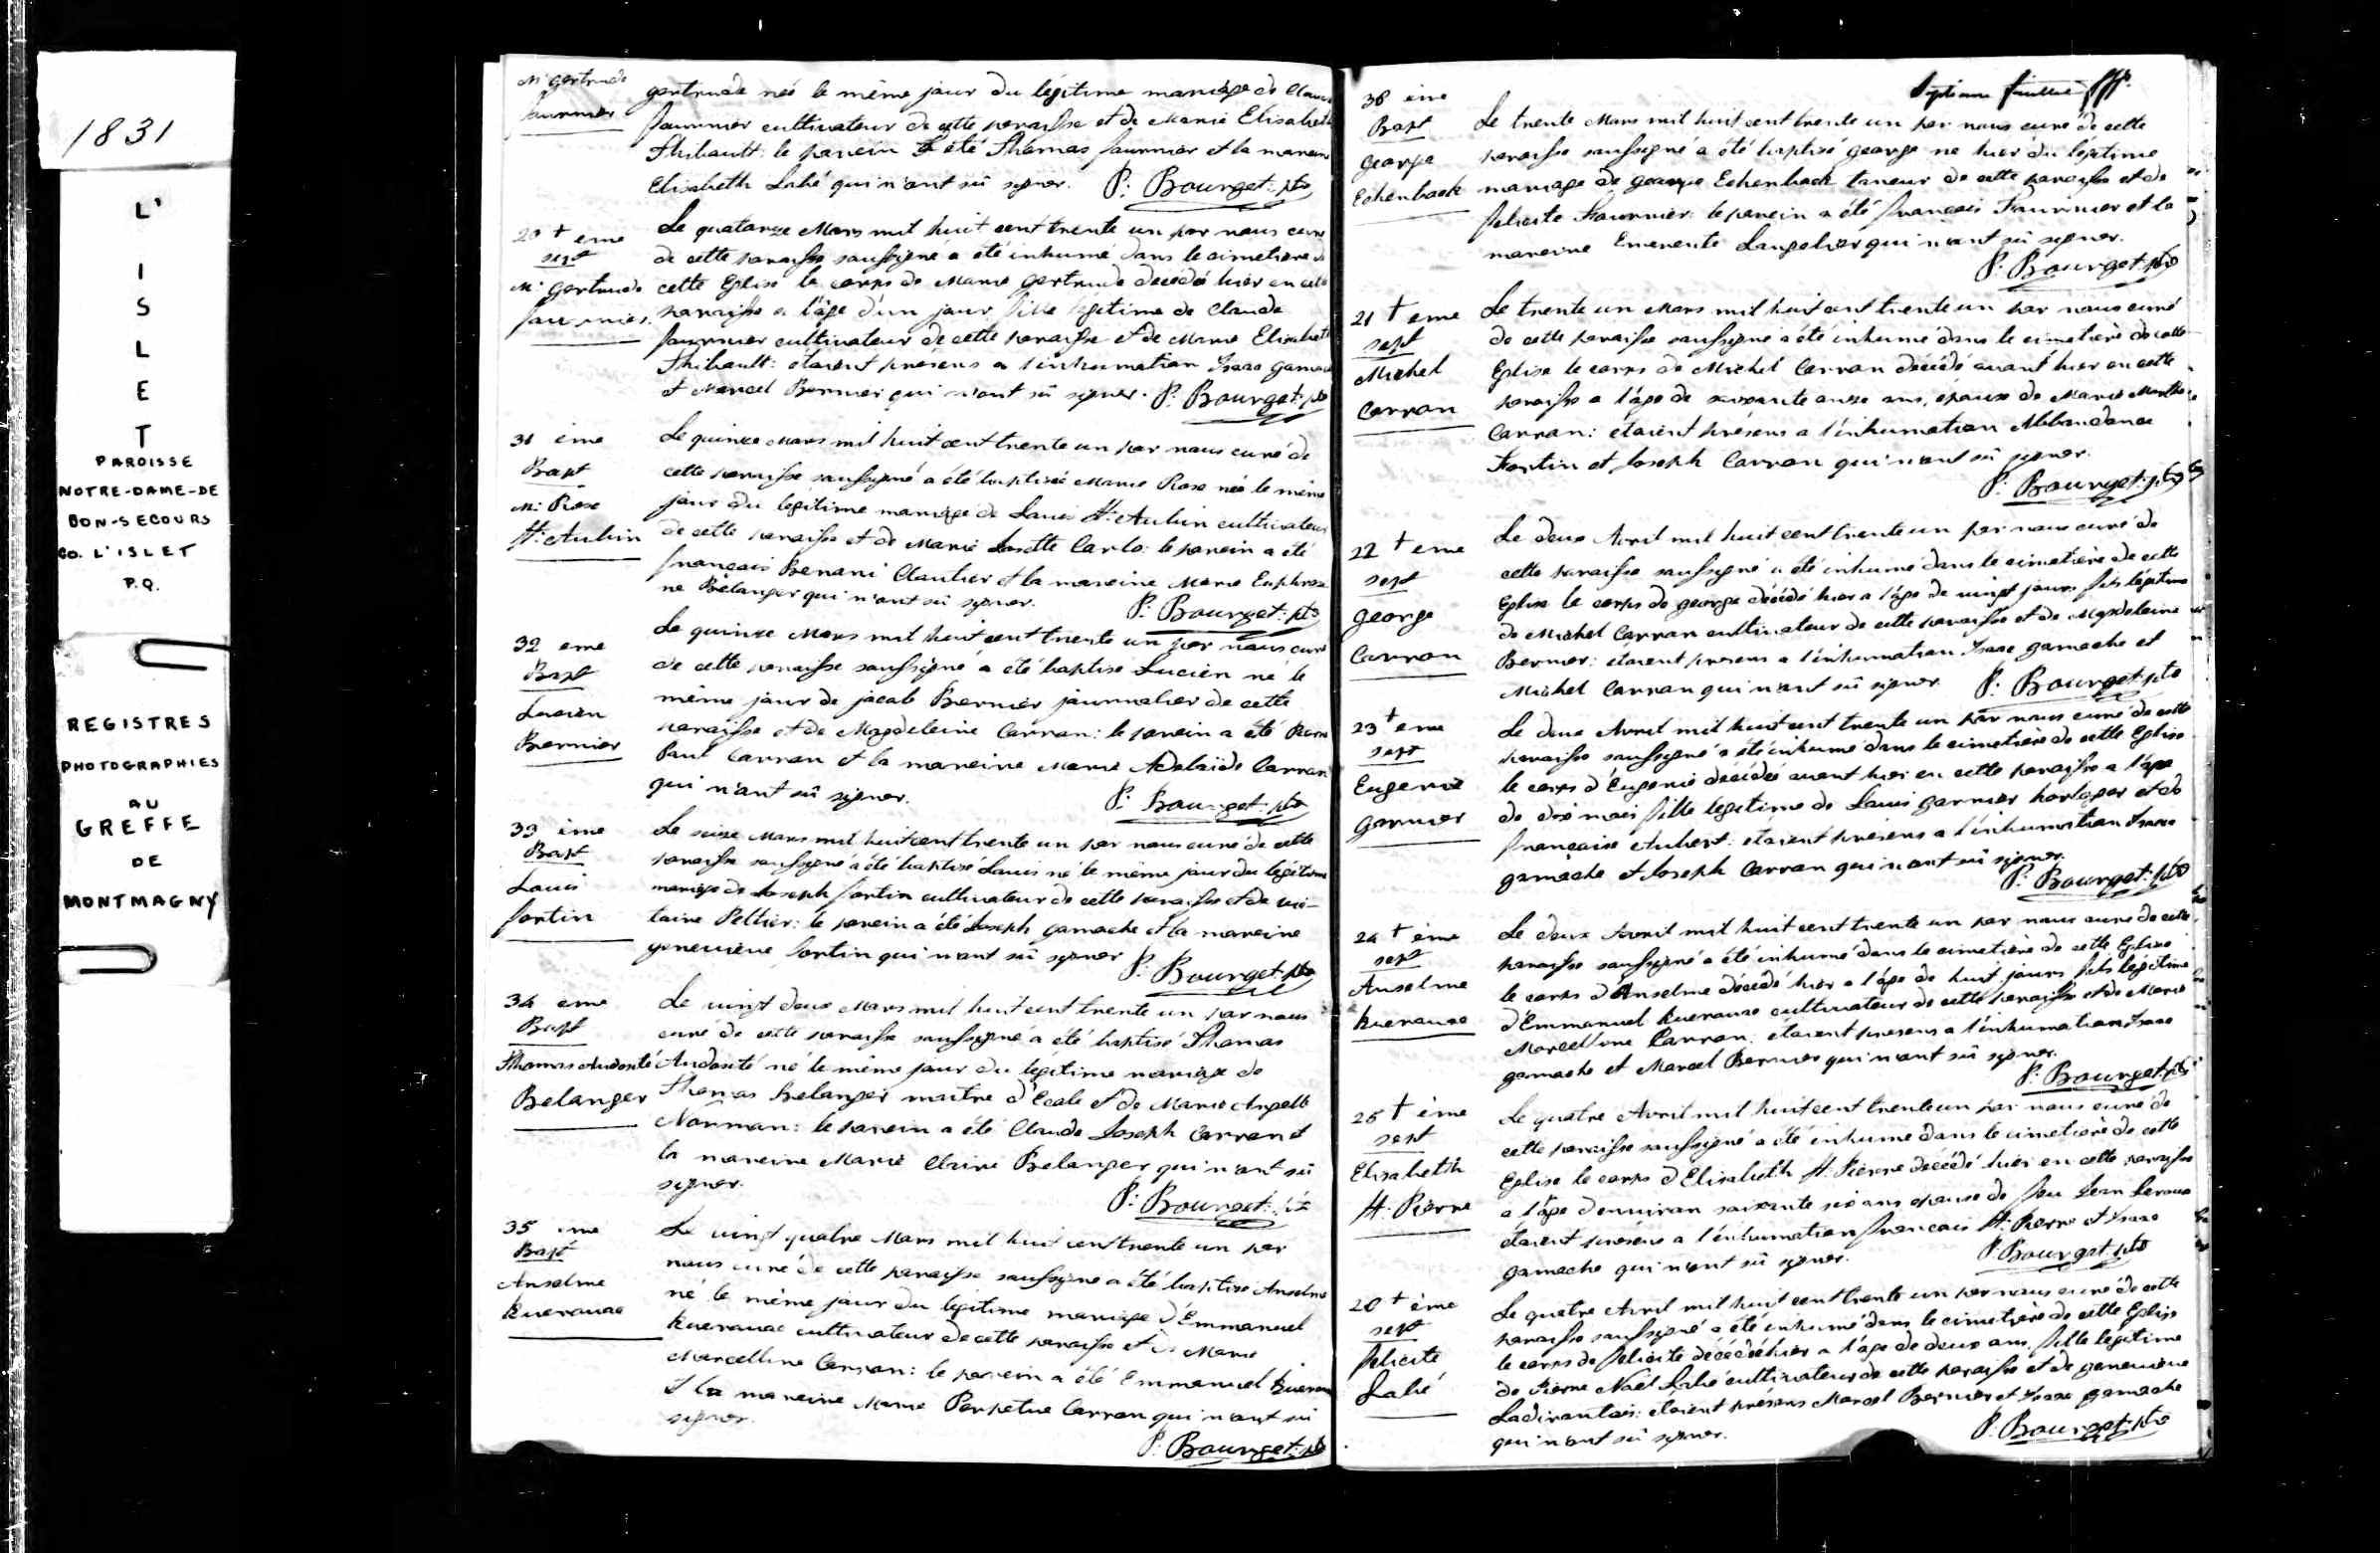 1831
L'
I
S
L
E
T
PAROISSE
NOTRE-DAME-DE
BON-SECOURS
CO. L'ISLET
P.Q.
REGISTRES
PHOTOGRAPHIES
AU
GREFFE
DE
MONTMAGNY
M: gertrude
fournier
gertrude née le même jour du légitime mariage de Claude
fournier cultivateur de cette paroisse et de Marie Elisabeth
Thibault: le parein a été Thomas fournier et la mareine
Elisabeth Labé qui n'ont sû signer. P: Bourget: ptre
20 + eme
sept
M: gertrude
fournier
Le quatorze Mars mil huit cent trente un par nous curé
de cette paroisse soussigné a été inhumé dans le cimetiere de
cette Eglise le corps de Marie gertrude décédé hier en cette
paroisse a l'âge d'un jour fille légitime de Claude
fournier cultivateur de cette paroisse et de Marie Elisabeth
Thibault: étaient présens a l'inhumation Isaac gamache
et Marcel Bernier qui n'ont sû signer. P: Bourget: ptre
31 ème
Bapt
M: Rose
St: Aubin
Le quinze Mars mil huit cent trente un par nous curé de
cette paroisse soussigné a été baptisée Marie Rose née le même
jour du légitime mariage de Louis St: Aubin cultivateur
de cette paroisse et de Marie Josette Carlo: le parein a été
francois Benoni Cloutier et la mareine Marie Euphrosi
ne Bélanger qui n'ont sû signer. P: Bourget: ptre
32 eme
Bapt
Lucien
Bernier
Le quinze Mars mil huit cent trente un par nous curé
de cette paroisse soussigné a été baptisé Lucien né le
même jour de jacob Bernier journalier de cette
paroisse et de Magdeleine Carron: le parein a été Pierre
Paul Carron et la mareine Marie Adelaïde Carron
qui n'ont sû signer. P: Bourget: ptre
33 ème
Bapt
Louis
fortin
Le seize Mars mil huit cent trente un par nous curé de cette
paroisse soussigné a été baptisé Louis né le même jour du légitime
mariage de Joseph fortin cultivateur de cette paroisse et de vic-
toire Peltier: le parein a été Joseph gamache et la mareine
genevieve fortin qui n'ont sû signer P: Bourget: ptre
34 eme
Bapt
Thomas Audosité
Belanger
Le vingt deux Mars mil huit cent trente un par nous
curé de cette paroisse soussigné a été baptisé Thomas
Audosité né le même jour du légitime mariage de
Thomas belanger maitre d'Ecole et de Marie Angelle
Norman: le parein a été Claude Joseph Carron et
la mareine Marie Claire Belanger qui n'ont sû
signer. P: Bourget: ptre
35 eme
Bapt
Anselme
kuerouac
Le vingt quatre Mars mil huit cent trente un par
nous curé de cette paroisse soussigné a été baptisé Anselme
né le même jour du légitime mariage d'Emmanuel
kuerouac cultivateur de cette paroisse et de Marie
Marcelline Carron: le parein a été Emmanuel kuerouac
et la mareine Marie Perpetue Carron qui n'ont sû
signer. P: Bourget: ptre
36 ème
Bapt
george
Echenback
Le trente Mars mil huit cent trente un par nous curé de cette
paroisse soussigné a été baptisé george né hier du légitime
mariage de george Echenback taneur de cette paroisse et de
felicité Fournier: le parein a été francois Fournier et la
mareine Emerente Langelier qui n'ont sû signer.
P: Bourget ptre
21 + eme
sept
Michel
Carron
Le trente un Mars mil huit cent trente un par nous curé
de cette paroisse soussigné a été inhumé dans le cimetière de cette
Eglise le corps de Michel Carron décédé avant hier en cette
paroisse a l'âge de soixante onze ans, époux de Marie Marthe
Carron: étaient présens a l'inhumation Abbondance
Fortin et Joseph Carron qui n'ont sû signer.
P: Bourget: ptre
22 + eme
sept
george
Carron
Le deux Avril mil huit cent trente un par nous curé de
cette paroisse soussigné a été inhumé dans le cimetière de cette
Eglise le corps de george décédé hier a l'âge de vingt jours fils légitime
de Michel Carron cultivateur de cette paroisse et de Magdeleine
Bernier: étaient presens a l'inhumation Isaac gamache et
Michel Carron qui n'ont sû signer P: Bourget: ptre
23 + eme
sept
Eugenie
garnier
Le deux Avril mil huit cent trente un par nous curé de cette
paroisse soussigné a été inhumé dans le cimetière de cette Eglise
le corps d'Eugenie décédée avant hier en cette paroisse a l'âge
de dix mois fille légitime de Louis garnier horloger et de
françoise Aubert: étaient présens a l'inhumation Isaac
gamache et Joseph Carron qui n'ont sû signer.
P: Bourget: ptre
24 + ème
sept
Anselme
kuerouac
Le deux Avril mil huit cent trente un par nous curé de cette
paroisse soussigné a été inhumé dans le cimetière de cette Eglise
le corps d'Anselme décédé hier a l'âge de huit jours fils légitime
d'Emmanuel kuerouac cultivateur de cette paroisse et de Marie
Marcelline Carron: étaient presens a l'inhumation Isaac
gamache et Marcel Bernier qui n'ont sû signer.
P: Bourget: ptre
25 + ème
sept
Elisabeth
St: Pierre
Le quatre Avril mil huit cent trente un par nous curé de
cette paroisse soussigné a été inhumé dans le cimetière de cette
Eglise le corps d'Elisabeth St: Pierre décédé hier en cette paroisse
a l'âge d'environ soixante six ans epouse de feu Jean Leroux
étaient présens a l'inhumation francois St: Pierre et Isaac
gamache qui n'ont sû signer. P: Bourget: ptre
26 + ème
sept
felicité
Labé
Le quatre Avril mil huit cent trente un par nous curé de cette
paroisse soussigné a été inhumé dans le cimetière de cette Eglise
le corps de felicité décédée hier a l'âge de deux ans, fille légitime
de Pierre Noël Labé cultivateur de cette paroisse et de genevieve
Ladirantais: étaient présens Marcel Bernier et Isaac gamache
qui n'ont sû signer. P: Bourget: ptre